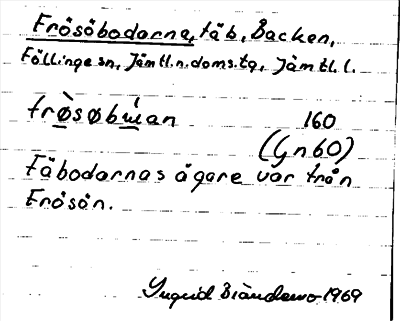 Frösöbodarna, fäb, Backen,
Föllinge sn, Jämtl.n.doms.tg, Jämtl.l.
frø̀søbu̵an 160
(Gn 60)
Fäbodarnas ägare var från
Frösön.
Ingrid Brändemo 1969